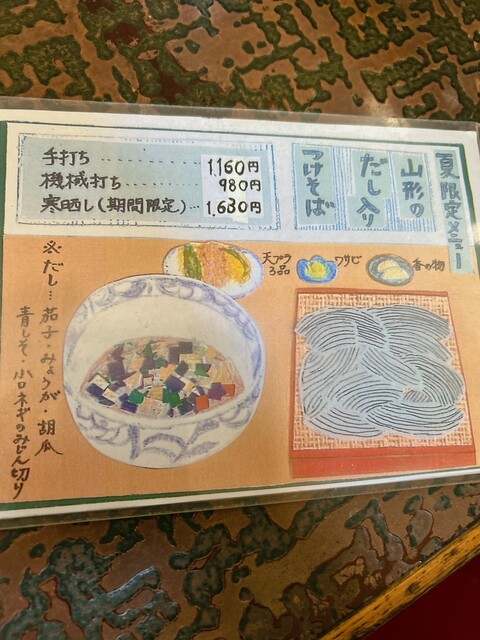 夏限定メニュー
山形の
だし入り
つけそば
手打ち………… 1,160円
機械打ち……… 980円
寒晒し(期間限定)… 1,630円
天プラ
3品
ワサビ
香の物
※だし…茄子・みょうが・胡瓜
青しそ・小口ネギのみじん切り